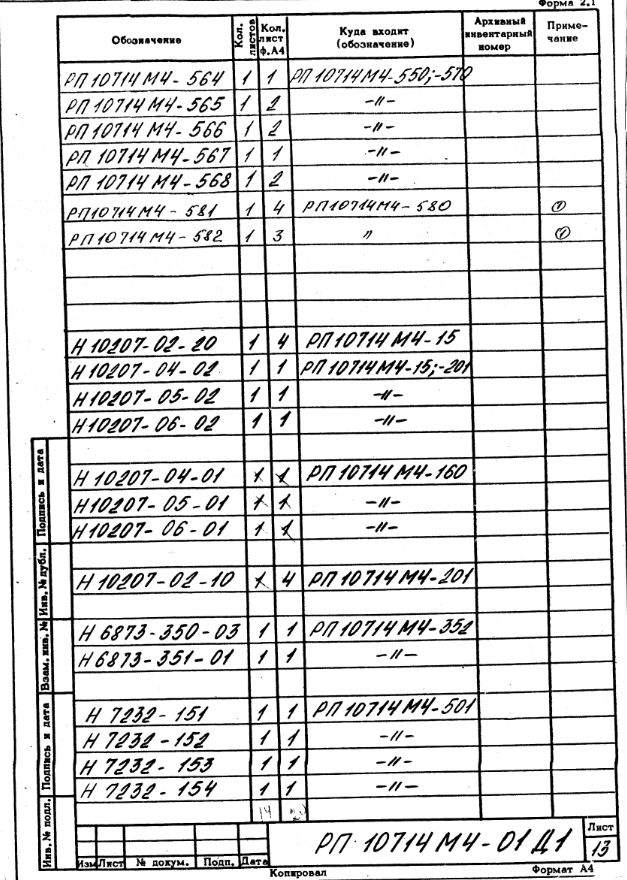 Форма 2.1
Обозначение Кол. листов Кол. лист ф.А4 Куда входит (обозначение) Архивный инвентарный номер Приме-чание
РП 10714 М4-564 1 1 РП 10714 М4-550;-570
РП 10714 М4-565 1 2 -〃-
РП 10714 М4-566 1 2 -〃-
РП 10714 М4-567 1 1 -〃-
РП 10714 М4-568 1 2 -〃-
РП 10714 М4-581 1 4 РП 10714 М4-580 ①
РП 10714 М4-582 1 3 〃 ①
Н 10207-02-20 1 4 РП 10714 М4-15
Н 10207-04-02 1 1 РП 10714 М4-15;-201
Н 10207-05-02 1 1 -〃-
Н 10207-06-02 1 1 -〃-
Н 10207-04-01 1 1 РП 10714 М4-160
Н 10207-05-01 1 1 -〃-
Н 10207-06-01 1 1 -〃-
Н 10207-02-10 1 4 РП 10714 М4-201
Н 6873-350-03 1 1 РП 10714 М4-352
Н 6873-351-01 1 1 -〃-
Н 7232-151 1 1 РП 10714 М4-501
Н 7232-152 1 1 -〃-
Н 7232-153 1 1 -〃-
Н 7232-154 1 1 -〃-
14
Подпись и дата
Инв. № дубл.
Взам. инв. №
Подпись и дата
Инв. № подл.
Изм Лист № докум. Подп. Дата
РП 10714 М4-01 Д1
Лист
13
Копировал
Формат А4